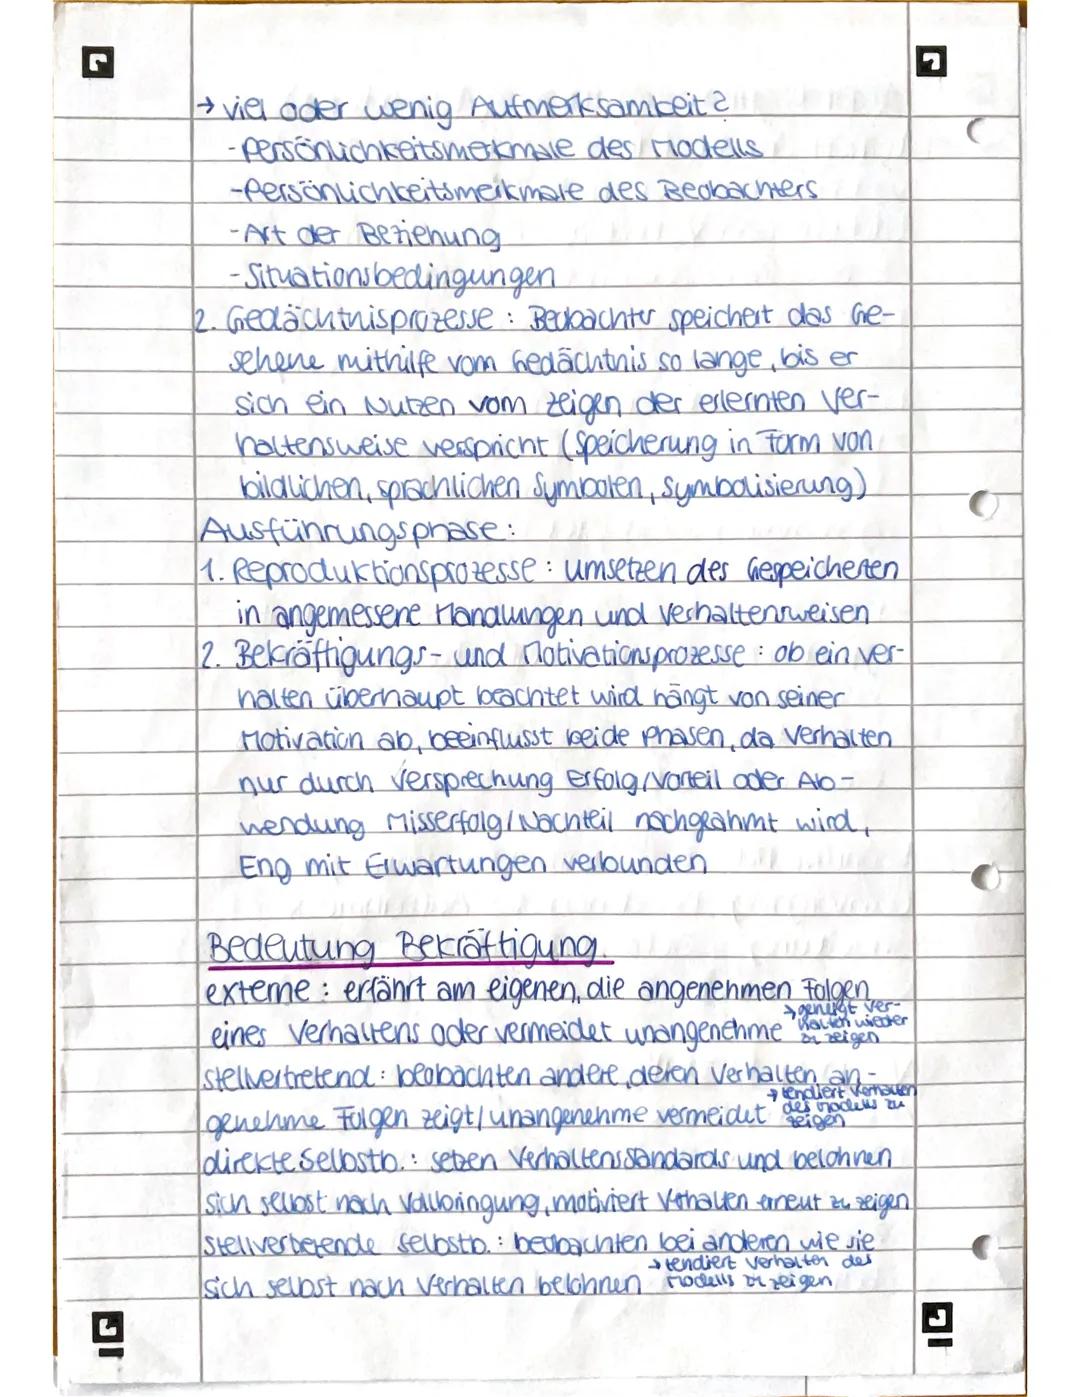 → viel oder wenig Aufmerksamkeit?
-Persönlichkeitsmerkmale des Modells
-Persönlichkeitsmerkmale des Beobachters
-Art der Beziehung
-Situationsbedingungen
2. Gedächtnisprozesse : Beobachter speichert das Ge-
sehene mithilfe vom Gedächtnis so lange, bis er
sich ein Nutzen vom zeigen der erlernten Ver-
haltensweise verspricht (Speicherung in Form von
bildlichen, sprachlichen Symbolen, Symbolisierung)
Ausführungsphase:
1. Reproduktionsprozesse : umsetzen des Gespeicherten
in angemessene Handlungen und Verhaltensweisen
2. Bekräftigungs- und Motivationsprozesse : ob ein Ver-
halten überhaupt beachtet wird hängt von seiner
Motivation ab, beeinflusst beide Phasen, da Verhalten
nur durch Versprechung Erfolg/Vorteil oder Ab-
wendung Misserfolg/Nachteil nachgeahmt wird,
Eng mit Erwartungen verbunden
Bedeutung Bekräftigung.
externe : erfährt am eigenen, die angenehmen Folgen
eines Verhaltens oder vermeidet unangenehme
→ geneigt Ver-
halten wieder
zu zeigen
stellvertretend : beobachten andere, deren Verhalten an-
genehme Folgen zeigt/unangenehme vermeidet
→ tendiert Verhalten
des Modells zu
zeigen
direkte Selbstb. : setzen Verhaltensstandards und belohnen
sich selbst nach Vollbringung, motiviert Verhalten erneut zu zeigen
Stellvertretende Selbstb. : beobachten bei anderen wie sie
sich selbst nach Verhalten belohnen
→ tendiert Verhalten des
Modells zu zeigen